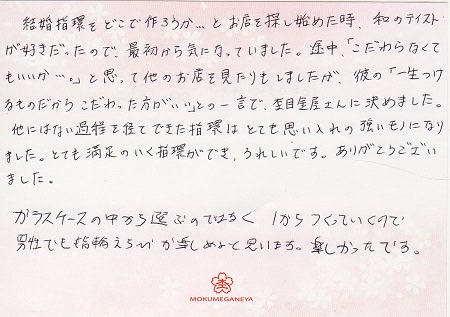 結婚指環をどこで作ろうか…とお店を探し始めた時、和のテイスト
が好きだったので、最初から気になっていました。途中、「こだわらなくて
もいいか…。」と思って他のお店を見たりもしましたが、彼の「一生つけ
るものだからこだわった方がいい」との一言で、杢目金屋さんに決めました。
他にはない過程を経てできた指環はとても思い入れの強いモノになり
ました。とても満足のいく指環ができ、うれしいです。ありがとうございい
ました。
ガラスケースの中から選ぶのではなく 1からつくっていくので
男性でも指輪えらびが楽しめると思います。楽しかったです。
MOKUMEGANEYA